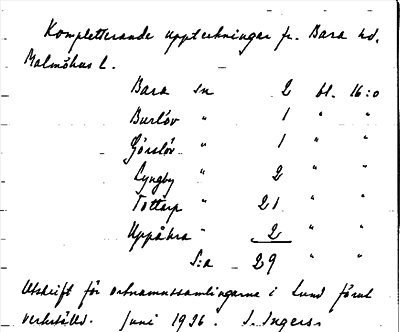 Kompletterande uppteckningar fr. Bara hd.
Malmöhus l.
Bara sn 2 bl. 16:o
Burlöv " 1 " "
Görslöv " 1 " "
Lyngby " 2 " "
Tottarp " 21 " "
Uppåkra " 2 " "
S:a 29 " "
Utskrift för ortnamnssamlingarna i Lund förut
verkställd. Juni 1936. I. Ingers.